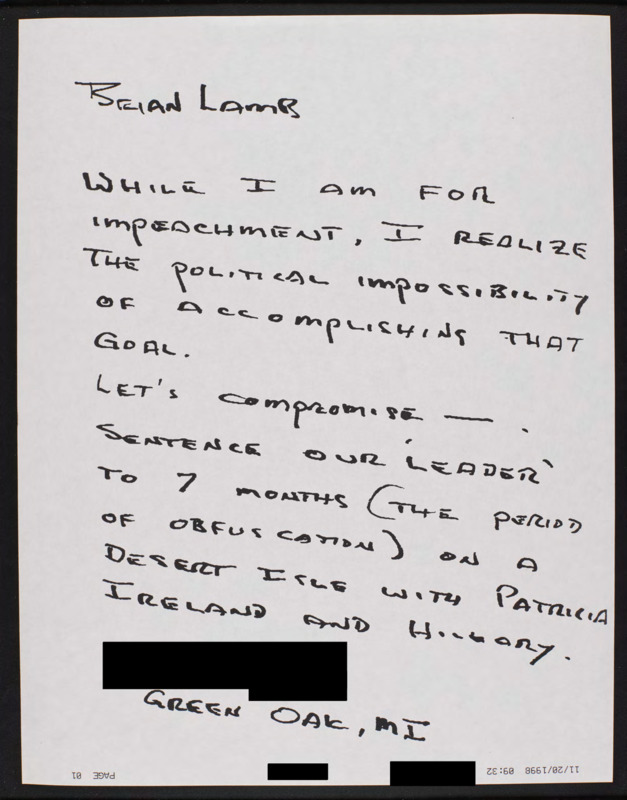 BRIAN LAMB
WHILE I AM FOR
IMPEACHMENT, I REALIZE
THE POLITICAL IMPOSSIBILITY
OF ACCOMPLISHING THAT
GOAL.
LET'S COMPROMISE — .
SENTENCE OUR 'LEADER'
TO 7 MONTHS (THE PERIOD
OF OBFUSCATION) ON A
DESERT ISLE WITH PATRICIA
IRELAND AND HILLARY.
GREEN OAK, MI
11/20/1998 09:32 PAGE 01